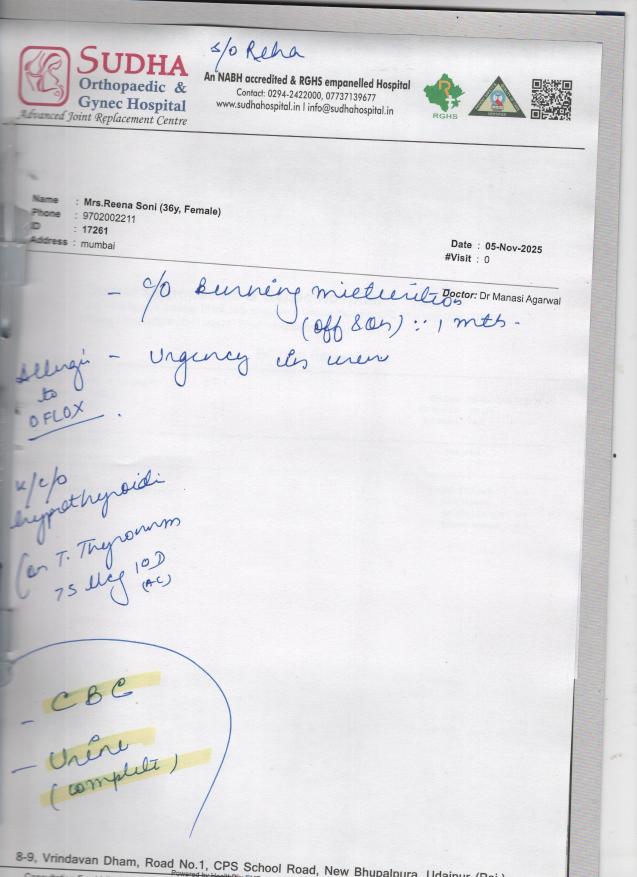 s/o Reha
SUDHA
Orthopaedic &
Gynec Hospital
Advanced Joint Replacement Centre
An NABH accredited & RGHS empanelled Hospital
Contact: 0294-2422000, 07737139677
www.sudhahospital.in | info@sudhahospital.in
RGHS
Name : Mrs.Reena Soni (36y, Female)
Phone : 9702002211
ID : 17261
Address : mumbai
Date : 05-Nov-2025
#Visit : 0
Doctor: Dr Manasi Agarwal
- c/o Burning micturition
(off & on) :: 1 mth -
- Urgency
Allergic
to
OFLOX
k/c/o
hypothyroidi
(on T. Thyronorm
75 Mcg 1OD
(AC)
- CBC
- Urine
(complete)
8-9, Vrindavan Dham, Road No.1, CPS School Road, New Bhupalpura, Udaipur (Raj.)